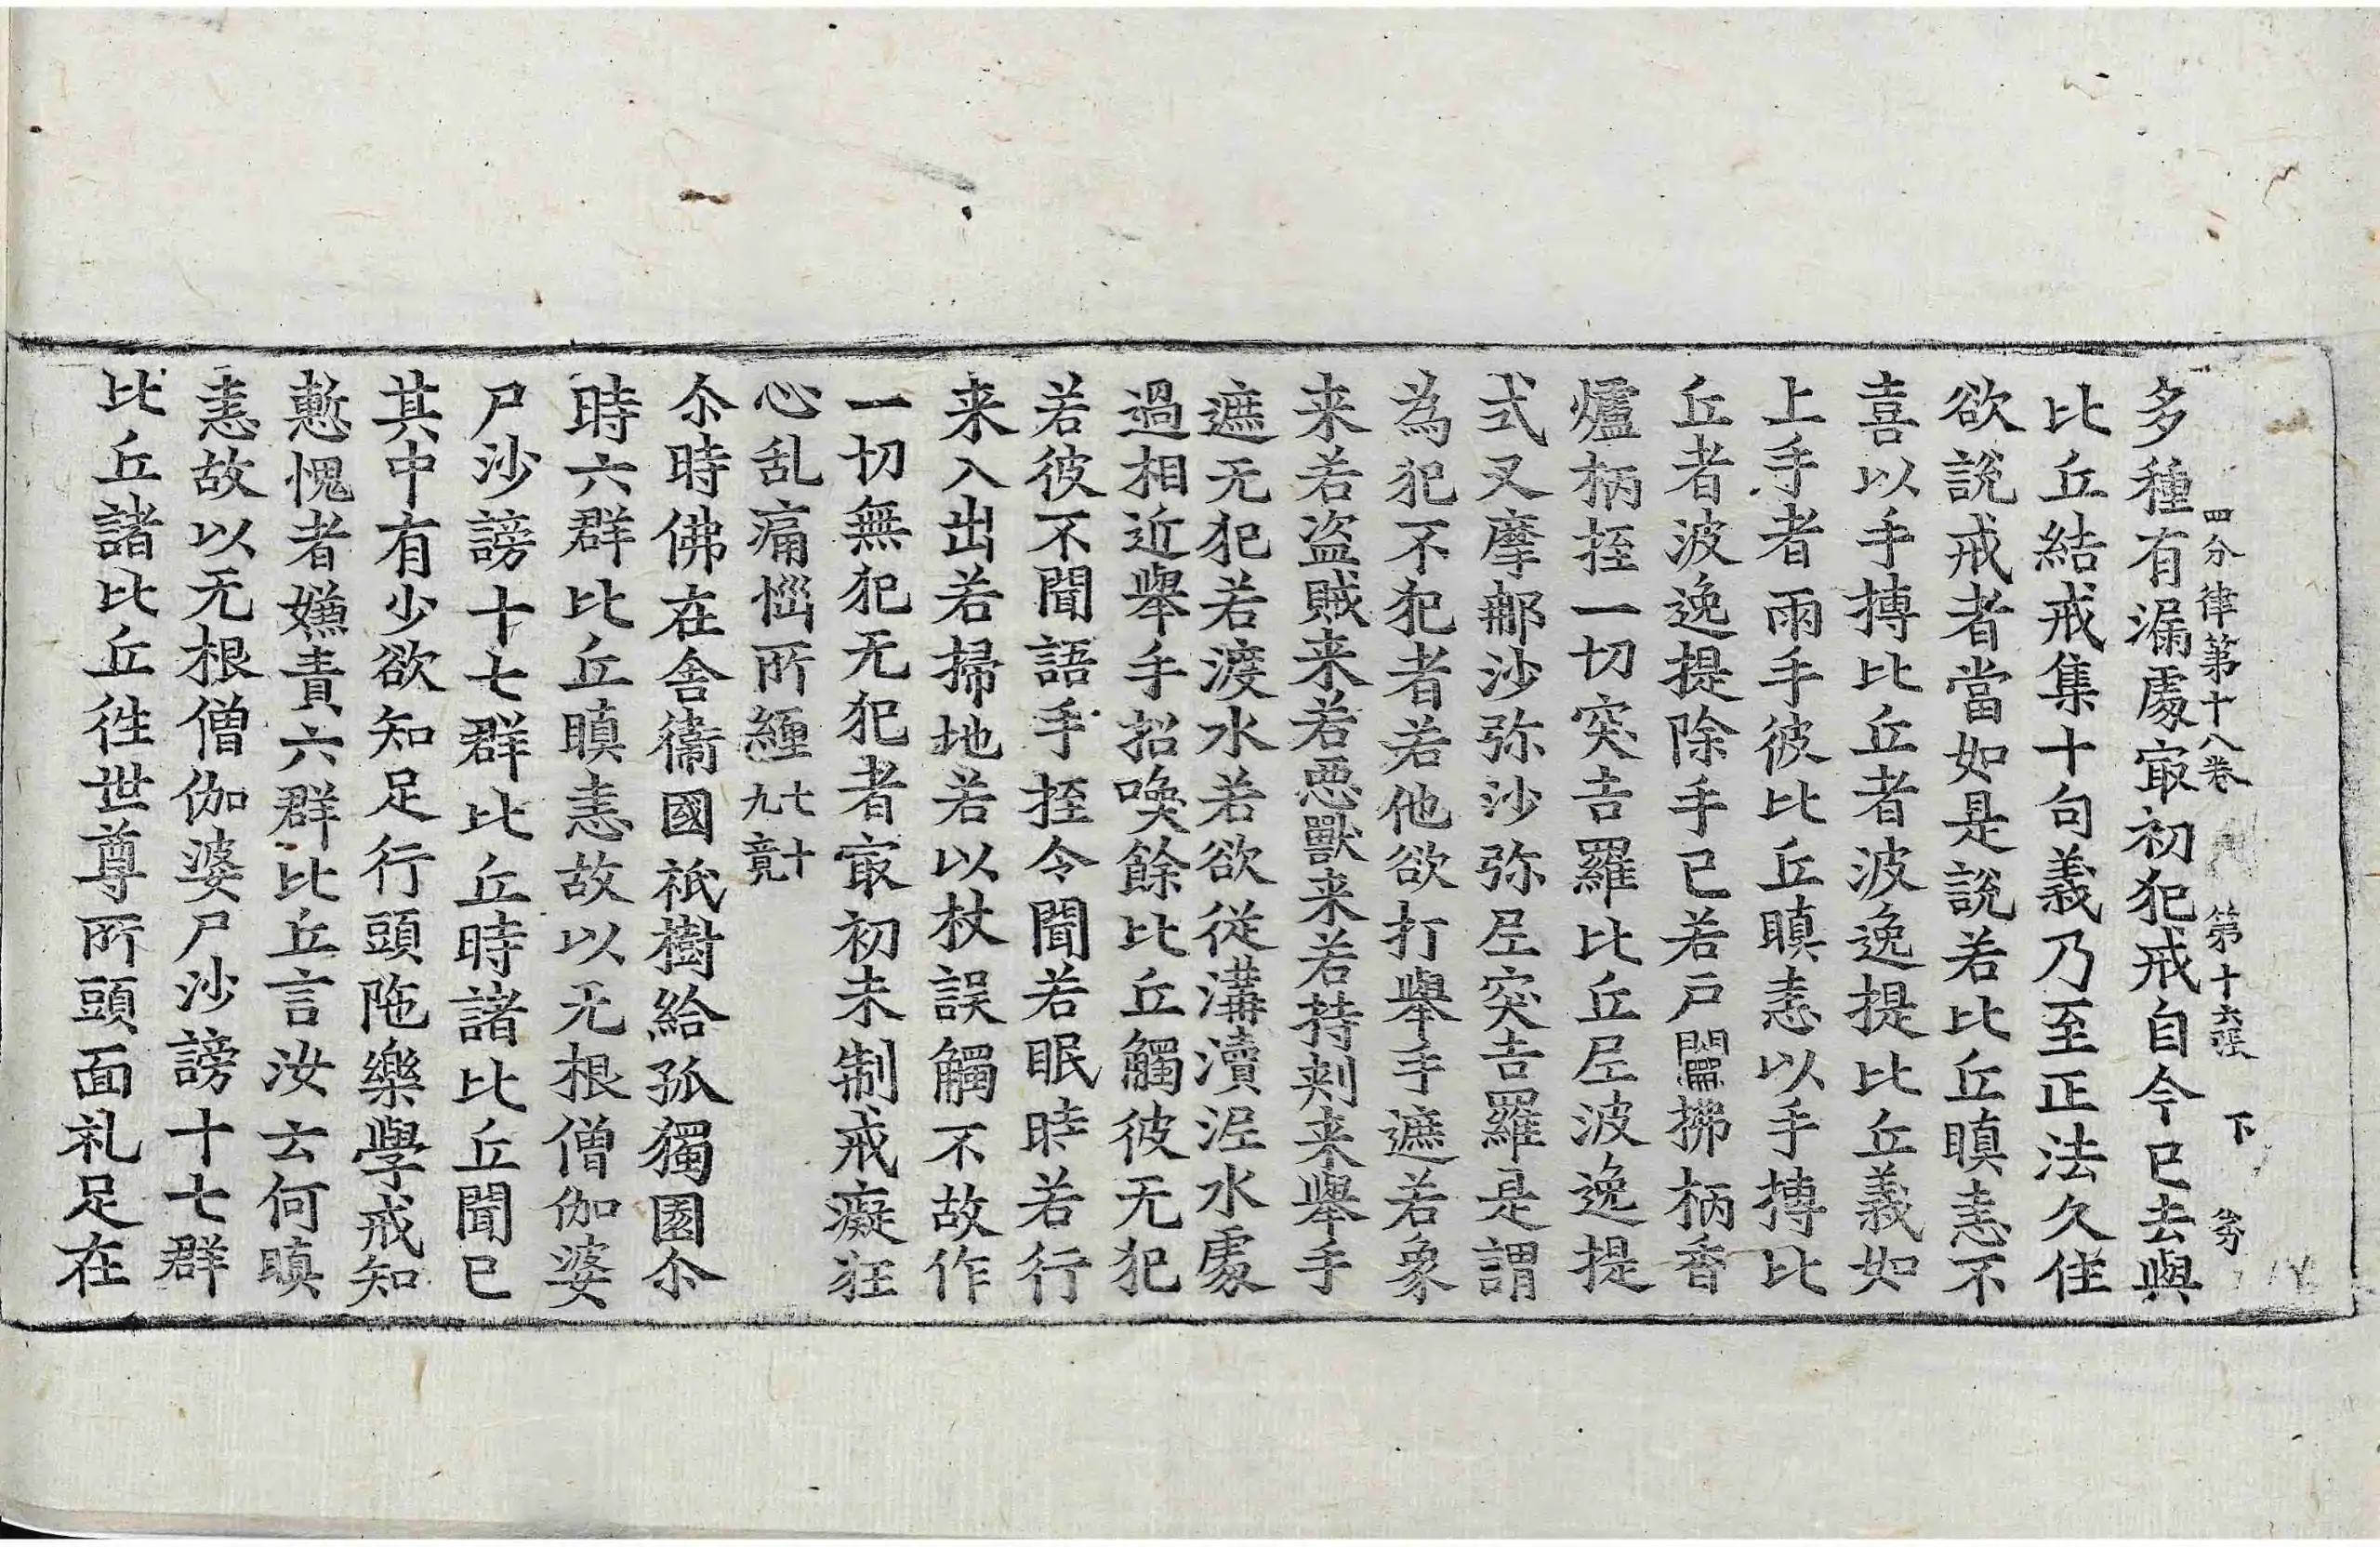 四分律第十八卷 第十六張 下 
多種有漏處冣初犯戒自今已去與
比丘結戒集十句義乃至正法久住
欲說戒者當如是說若比丘瞋恚不
喜以手搏比丘者波逸提比丘義如
上手者兩手彼比丘瞋恚以手搏比
丘者波逸提除手已若戶𨷲拂柄香
爐柄挃一切突吉羅比丘𡰱波逸提
式叉摩那沙弥沙弥𡰱突吉羅是謂
為犯不犯者若他欲打舉手遮若象
来若盗賊来若惡獸来若持刾来舉手
遮无犯若渡水若欲從溝瀆泥水處
過相近舉手招喚餘比丘觸彼无犯
若彼不聞語手挃令聞若眠時若行
来入出若掃地若以杖誤觸不故作
一切無犯无犯者冣初未制戒癡狂
心乱痛惱所纏七十九竟
尒時佛在舍衞國祇樹給孤獨園尒
時六群比丘瞋恚故以无根僧伽婆
尸沙謗十七群比丘時諸比丘聞已
其中有少欲知足行頭陁樂學戒知
慙愧者嫌責六群比丘言汝云何瞋
恚故以无根僧伽婆尸沙謗十七群
比丘諸比丘徃世尊所頭面礼足在